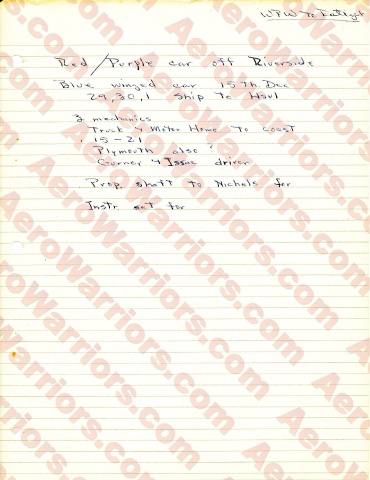 WPW To
Red/Purple car off Riverside
Blue winged car 15th. Dec
29, 30, 1 ship To
mechanics
Truck & Motor Home To Coast
15-21
Plymouth also
& Issac driver
Prop. shaft to Nichels for
Instr. set for
AeroWarriors.com